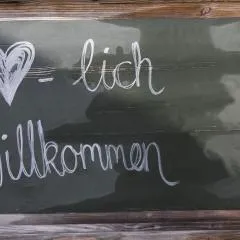 ♥- lich
willkommen